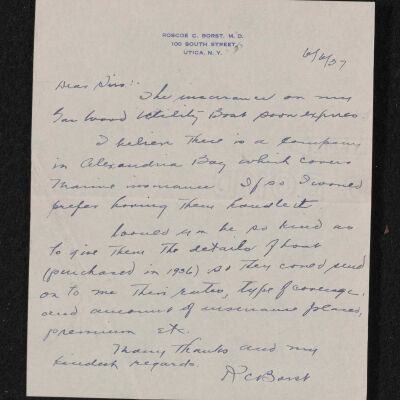 ROSCOE C. BORST, M. D.
100 SOUTH STREET
UTICA, N. Y.
6/6/37
Dear Sirs:-
The insurance on my
Gar Wood Utility Boat soon expires.
I believe there is a company
in Alexandria Bay which covers
Marine insurance. If so I would
prefer having them handle it
Would you be so kind as
to give them the details of boat
(purchased in 1936) so they could send
on to me their rates, type of coverage,
and amount of insurance placed,
premium etc.
Many thanks and my
kindest regards.
R C Borst